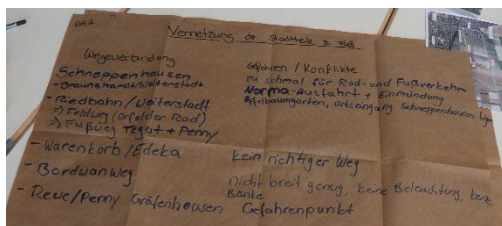 Vernetzung der Stadtteile
Wegeverbindung
Schneppenhausen
- Braunshardt/Weiterstadt
- Riedbahn/Weiterstadt
=> Feldweg
=> Fußweg Tegut + Penny
- Warenkorb/Edeka
- Bordwanweg
- Rewe/Penny Gräfenhausen
Gefahren / Konflikte
zu schmal für Rad- und Fußverkehr
Norma-Ausfahrt + Einmündung
Apfelbaumgarten, ortseingang Schneppenhausen
kein richtiger Weg
nicht breit genug, keine Beleuchtung, keine
Bänke
Gefahrenpunkt